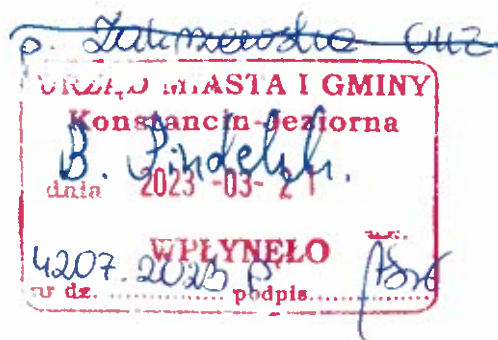 p. Zakrzewska
URZĄD MIASTA I GMINY
Konstancin-Jeziorna
B.
dnia 2023 -03- 21
WPŁYNĘŁO
4207.2023 P
nr dz. .................. podpis ..................